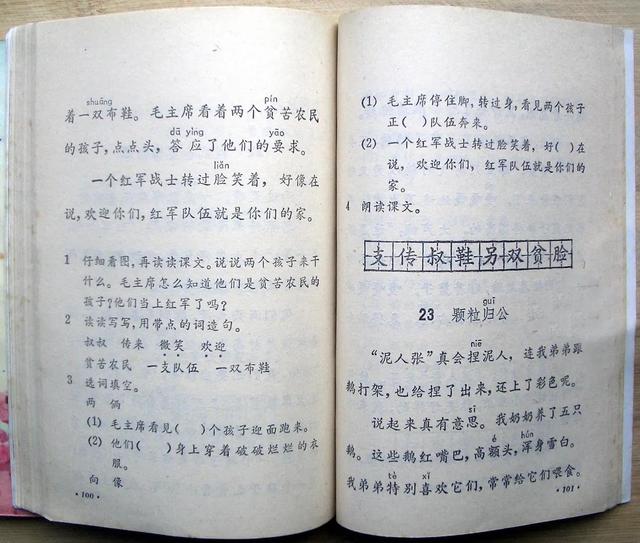 shuāng pín
着一双布鞋。毛主席看着两个贫苦农民
dā yìng yāo
的孩子，点点头，答应了他们的要求。
liǎn
一个红军战士转过脸笑着，好像在
说，欢迎你们，红军队伍就是你们的家。
1 仔细看图，再读读课文。说说两个孩子来干
什么。毛主席怎么知道他们是贫苦农民的
孩子？他们当上红军了吗？
2 读读写写，用带点的词造句。
叔叔 传来 微笑 欢迎
贫苦农民 一支队伍 一双布鞋
3 选词填空。
两 俩
(1) 毛主席看见( )个孩子迎面跑来。
(2) 他们( )身上穿着破破烂烂的衣
服。
向 像
·100·
(1) 毛主席停住脚，转过身，看见两个孩子
正( )队伍奔来。
(2) 一个红军战士转过脸笑着，好( )在
说，欢迎你们，红军队伍就是你们的
家。
4 朗读课文。
支传叔鞋另双贫脸
guī
23 颗粒归公
niē
“泥人张”真会捏泥人，连我弟弟跟
鹅打架，也给捏了出来，还上了彩色呢。
si
说起来真有意思。我奶奶养了五只
é hún
鹅。这些鹅红嘴巴，高额头，浑身雪白。
tè xǐ
我弟弟特别喜欢它们，常常给它们喂食。
·101·